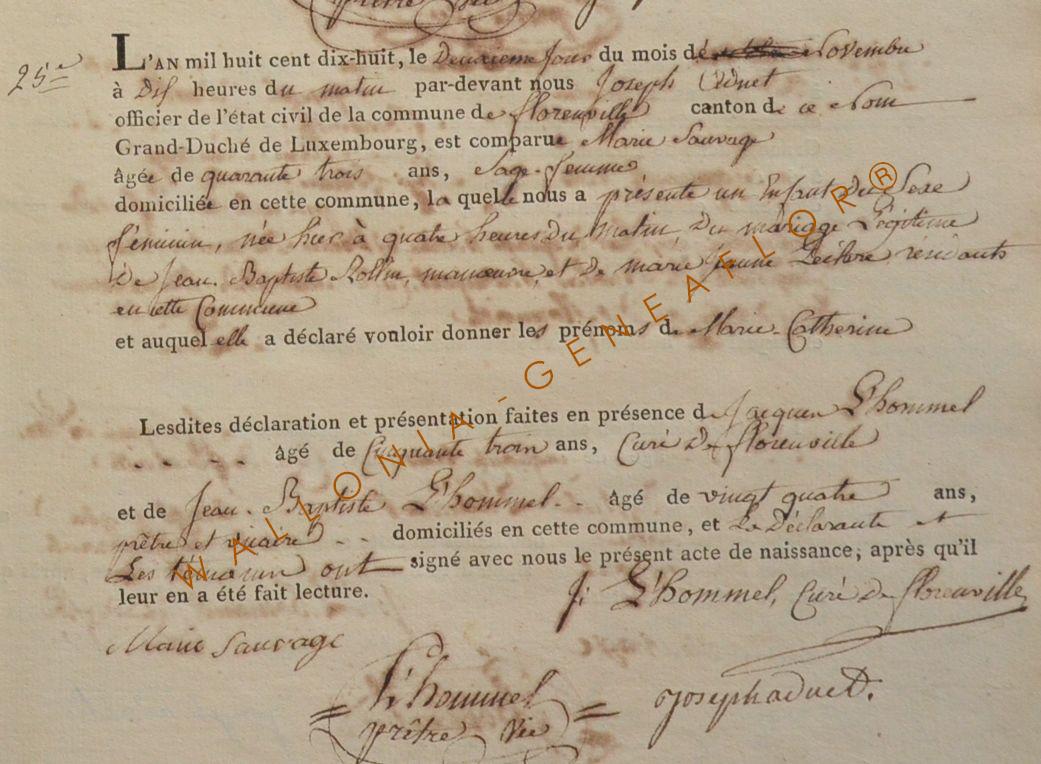 25e
L'AN mil huit cent dix-huit, le Deuxieme Jour du mois de Novembre
à Dix heures du matin par-devant nous Joseph Adnet
officier de l'état civil de la commune de florenville canton de ce Nom
Grand-Duché de Luxembourg, est comparue Marie Sauvage
âgée de quarante trois ans, Sage-femme
domiciliée en cette commune, la quelle nous a présenté un Enfant du Sexe
féminin, née hier à quatre heures Du Matin, Du mariage Légitime
De Jean-Baptiste Rollin, manœuvre, et de marie jeanne Leclere résidants
en cette Commune
et auquel elle a déclaré vouloir donner les prénoms de Marie-Catherine
Lesdites déclaration et présentation faites en présence de Jacques L'hommel
âgé de Cinquante trois ans, Curé De florenville
et de Jean-Baptiste L'hommel âgé de vingt quatre ans,
prêtre et vicaire domiciliés en cette commune, et La Déclarante et
Les témoins ont signé avec nous le présent acte de naissance, après qu'il
leur en a été fait lecture.
J: L'hommel, Curé De florenville
Marie Sauvage
L'hommel
prêtre Vic
Joseph adnet.
WALLONIA-GENEAFLOR®